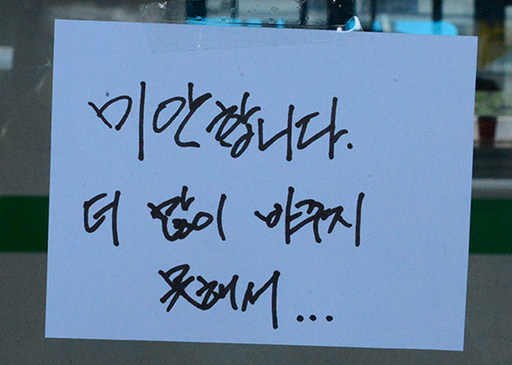 미안합니다.
더 많이 바꾸지
못해서 ...